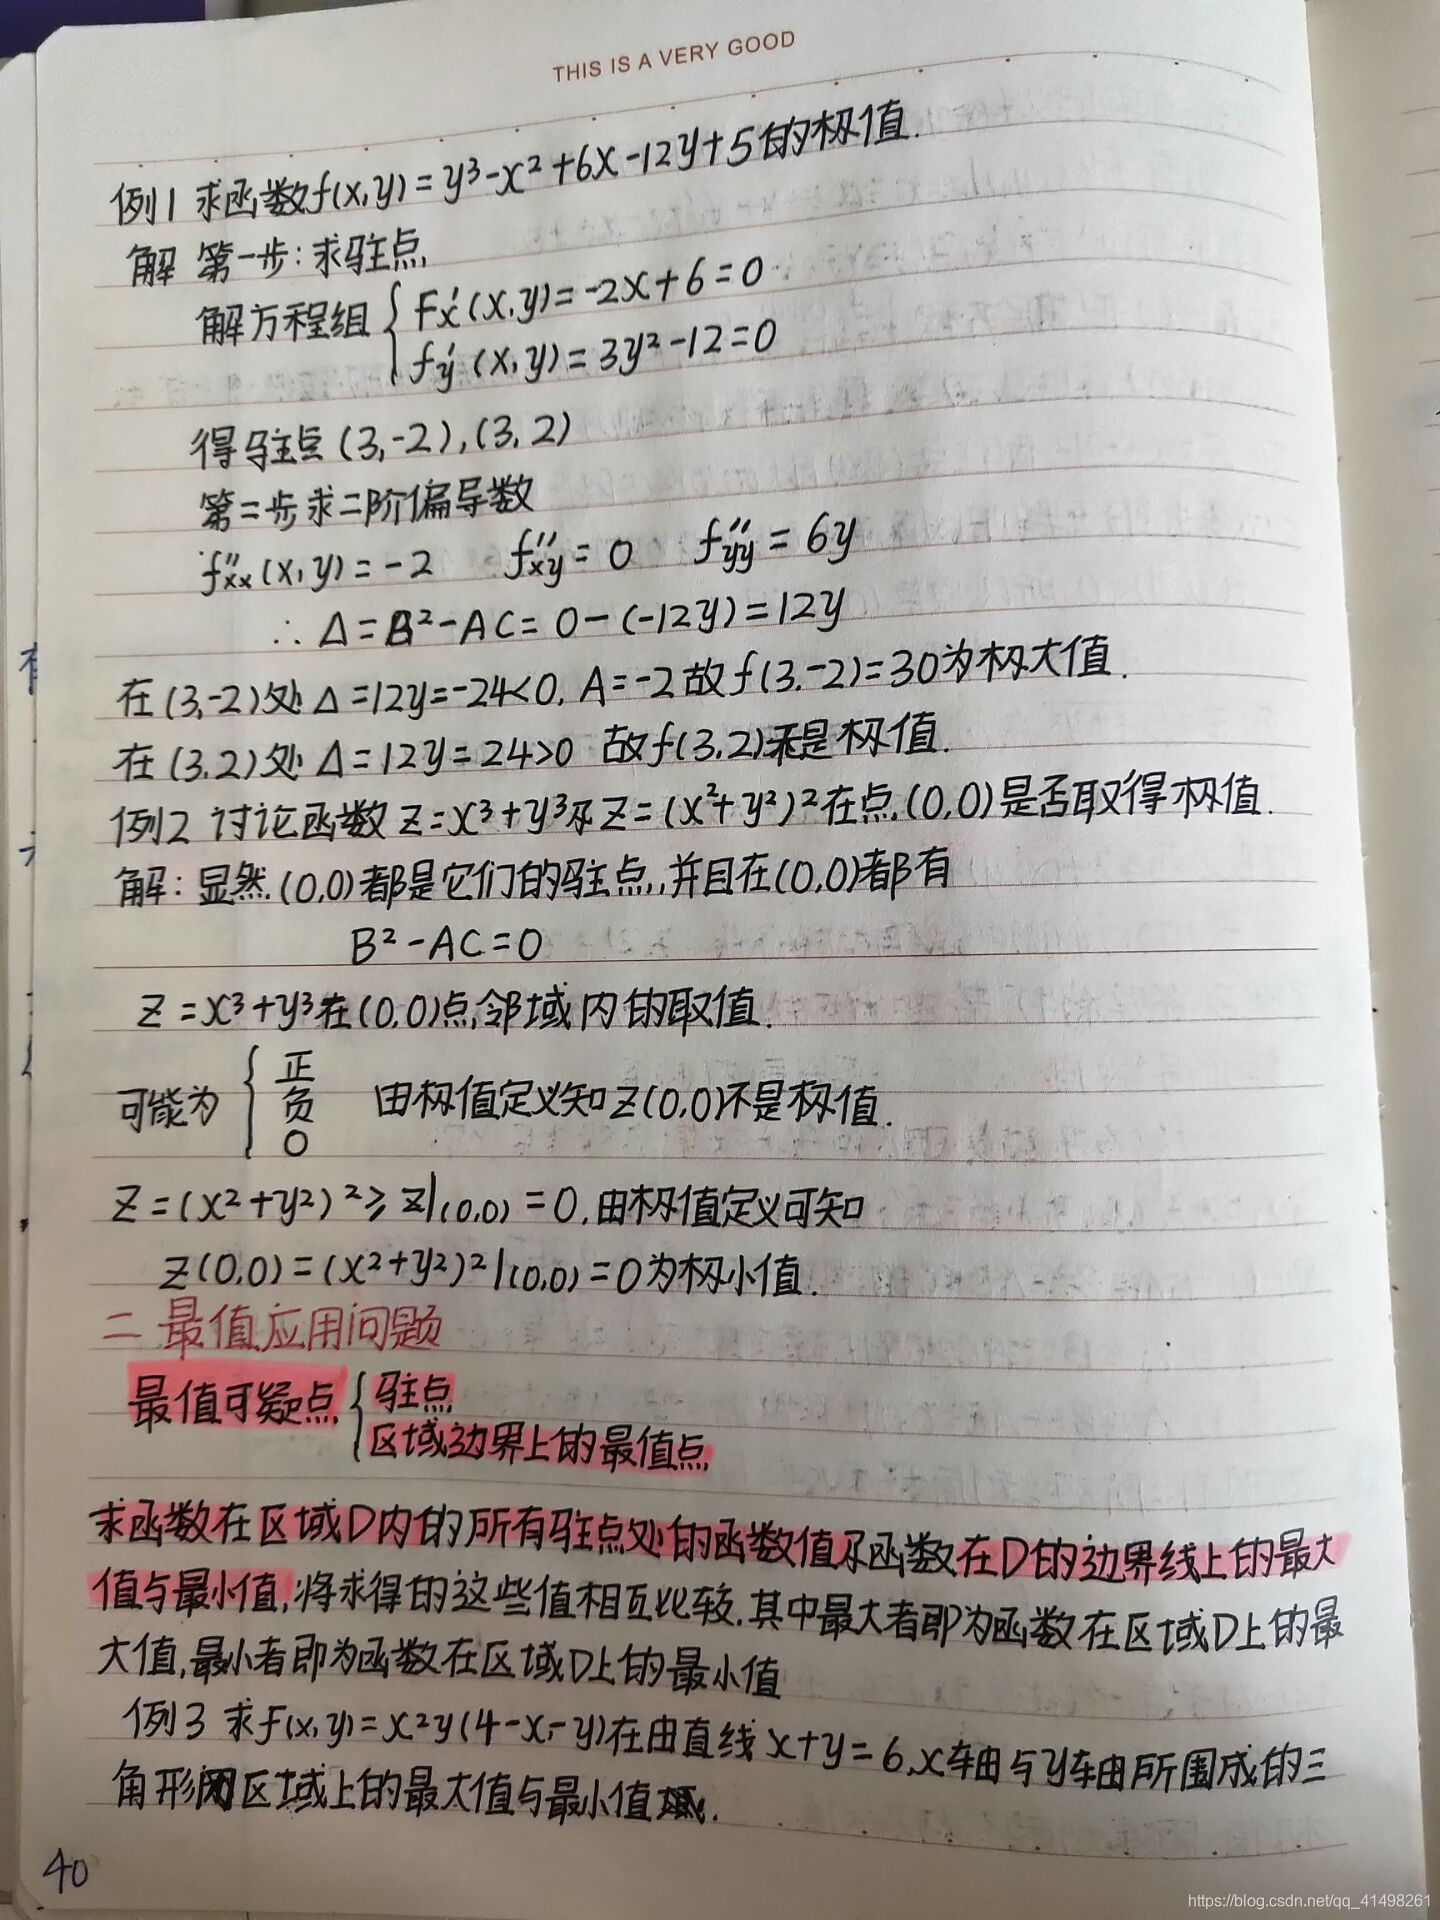 THIS IS A VERY GOOD
例1 求函数f(x,y)=y³-x²+6x-12y+5的极值.
解 第一步:求驻点,
解方程组 { Fx'(x,y)=-2x+6=0
fy'(x,y)=3y²-12=0
得驻点(3,-2),(3,2)
第二步求二阶偏导数
f''xx(x,y)=-2 f''xy=0 f''yy=6y
∴ Δ=B²-AC=0-(-12y)=12y
在(3,-2)处Δ=12y=-24<0, A=-2故f(3,-2)=30为极大值.
在(3,2)处Δ=12y=24>0 故f(3,2)不是极值.
例2 讨论函数Z=x³+y³及Z=(x²+y²)²在点(0,0)是否取得极值.
解:显然(0,0)都是它们的驻点,并且在(0,0)都有
B²-AC=0
Z=x³+y³在(0,0)点邻域内的取值.
可能为 { 正
负
0
由极值定义知Z(0,0)不是极值.
Z=(x²+y²)²≥Z|(0,0)=0,由极值定义可知
Z(0,0)=(x²+y²)²|(0,0)=0为极小值.
二 最值应用问题
最值可疑点 { 驻点
区域边界上的最值点,
求函数在区域D内的所有驻点处的函数值及函数在D的边界线上的最大
值与最小值,将求得的这些值相互比较,其中最大者即为函数在区域D上的最
大值,最小者即为函数在区域D上的最小值
例3 求f(x,y)=x²y(4-x-y)在由直线x+y=6,x轴与y轴所围成的三
角形闭区域上的最大值与最小值.
40
https://blog.csdn.net/qq_41498261